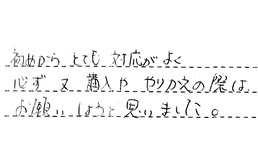 初めから とても 対応が よく
必ず 又 購入や やりかえの際は
お願いしようと思いました。